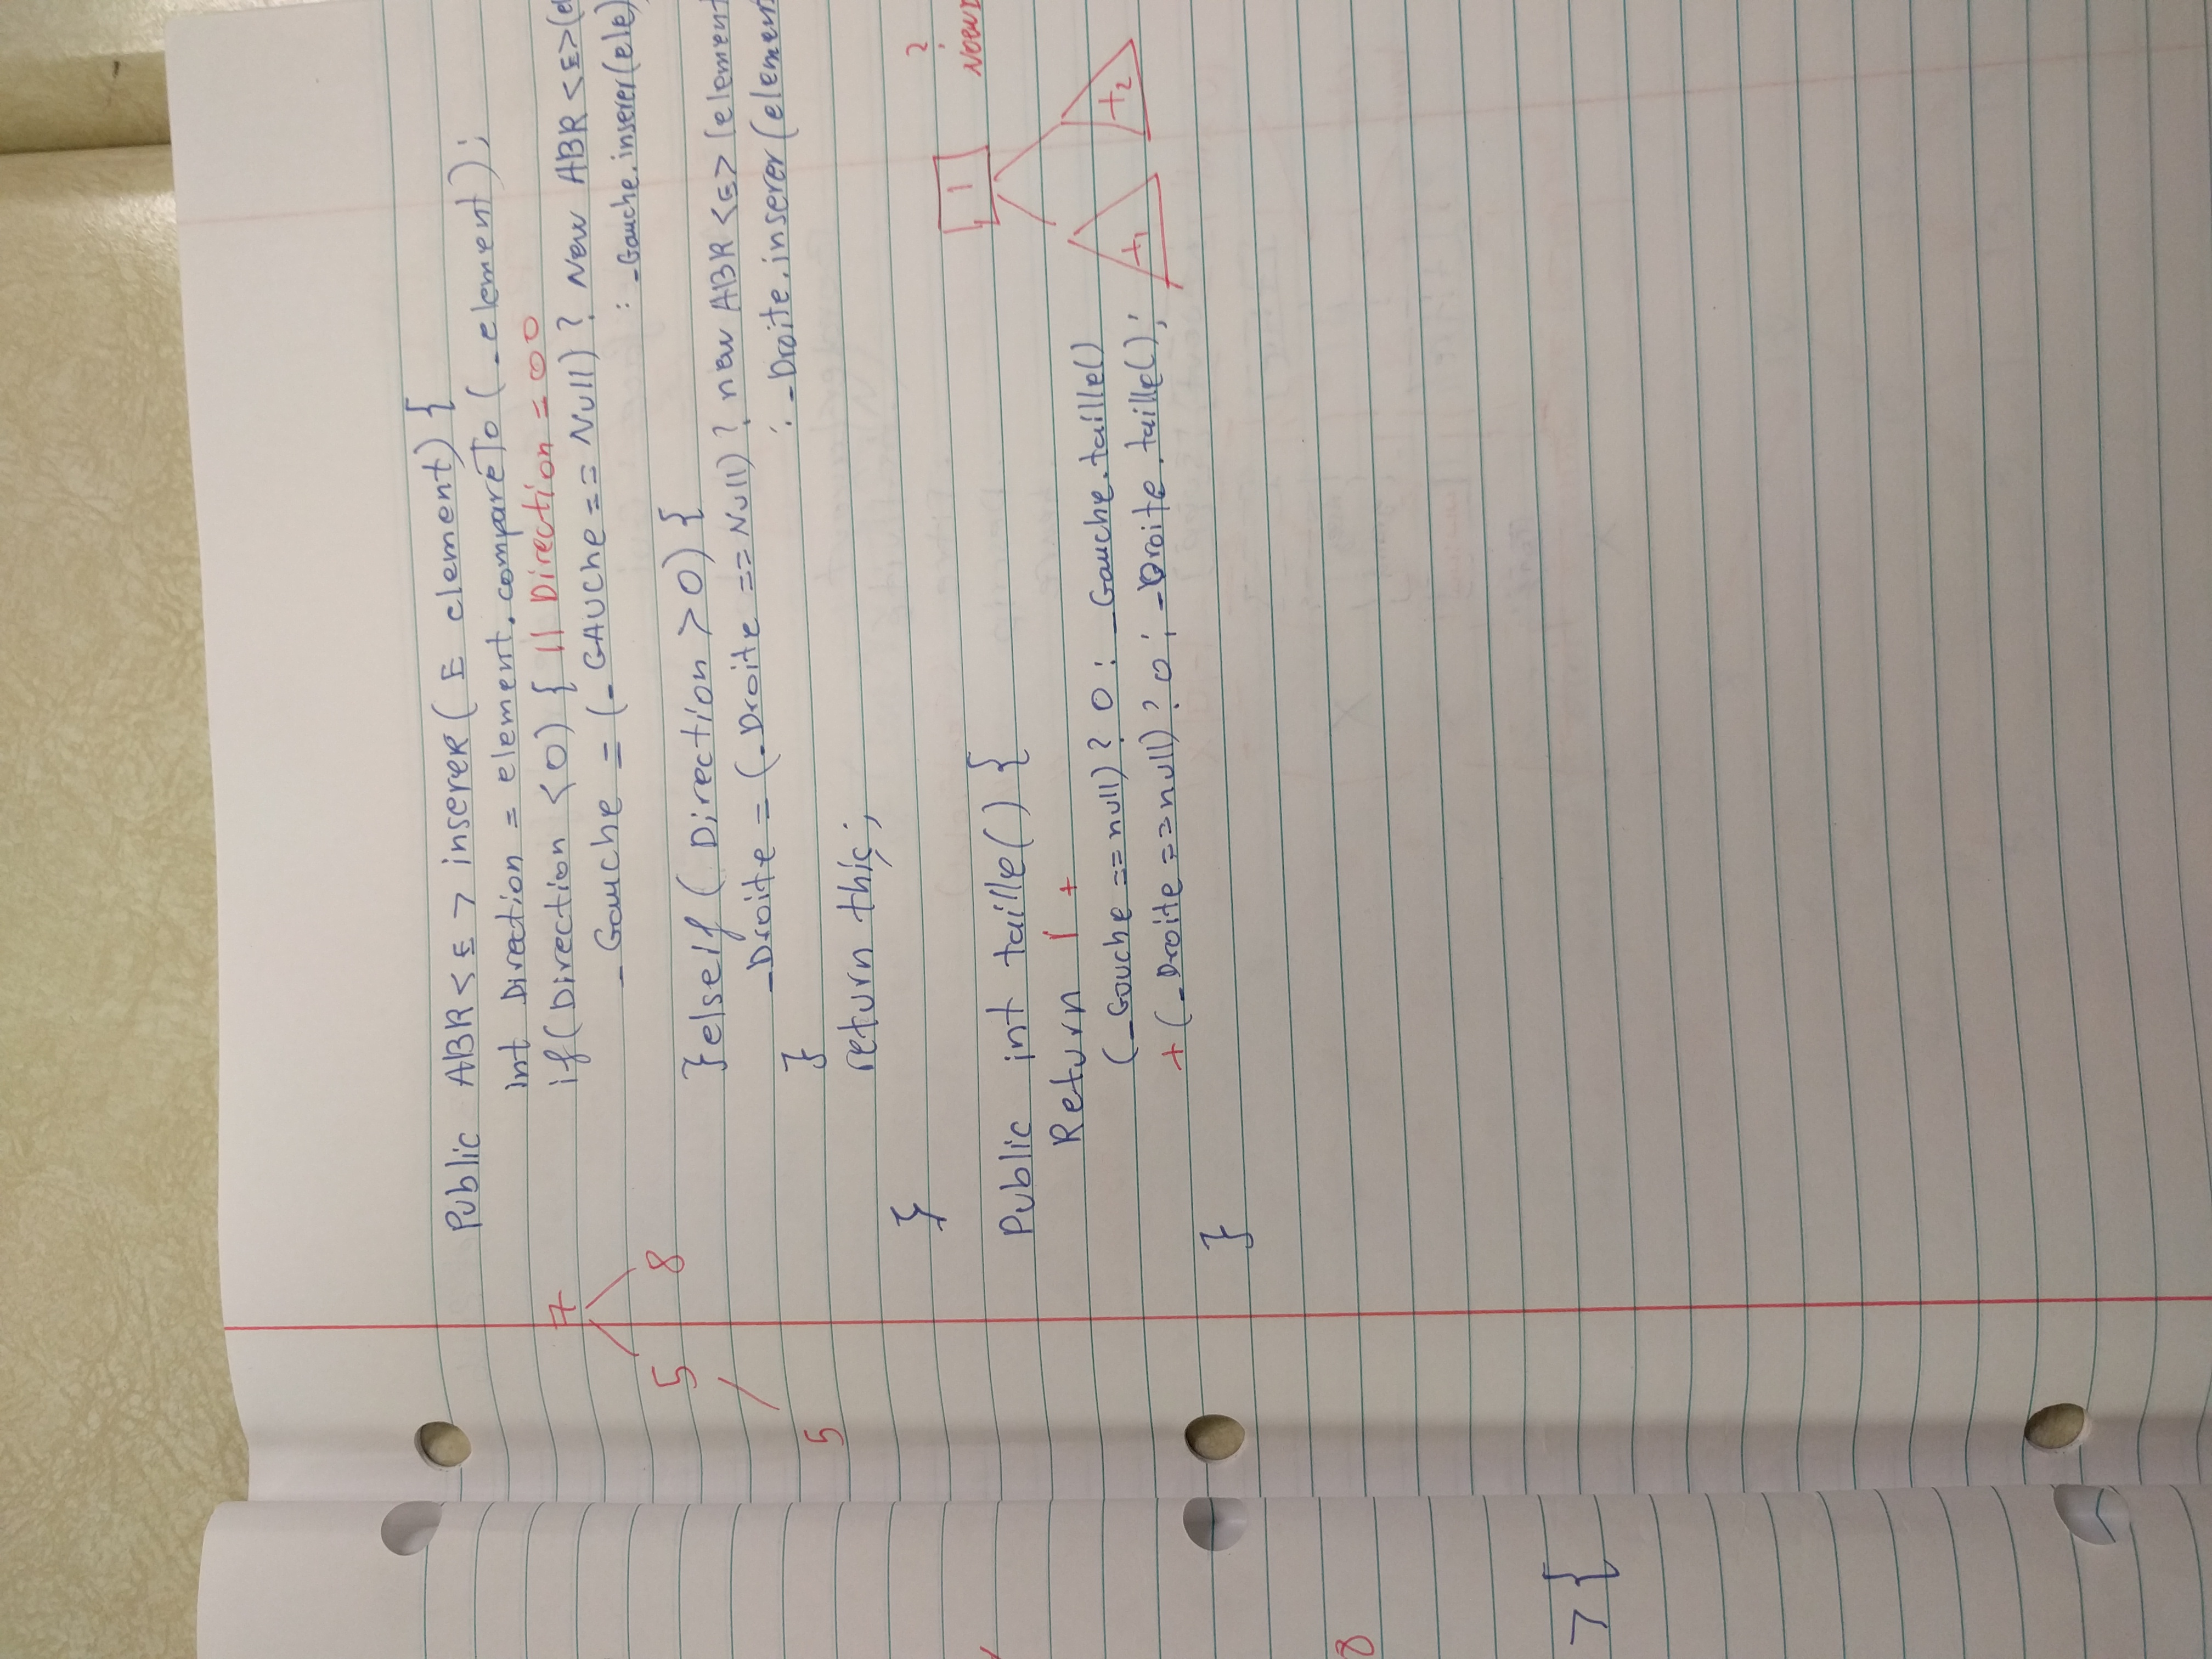 Public ABR<E> inserer( E element) {
int Direction = element.compareTo (_element);
if(Direction <0) { || Direction = 00
_Gauche = (_GAUChe == Null) ? New ABR <E>(e
: _Gauche.inserer(ele)
7
5 8
5
} elseif ( Direction >0) {
_Droite = (_Droite == Null) ? new ABR <E> (element
: _Droite.inserer (elemen
}
return this;
}
?
Noeu
1
t1 t2
Public int taille() {
Return 1 +
(_Gauche == null) ? 0 : _Gauche.taille()
+ (_Droite == null) ? 0 : _Droite.taille();
}
8
> {